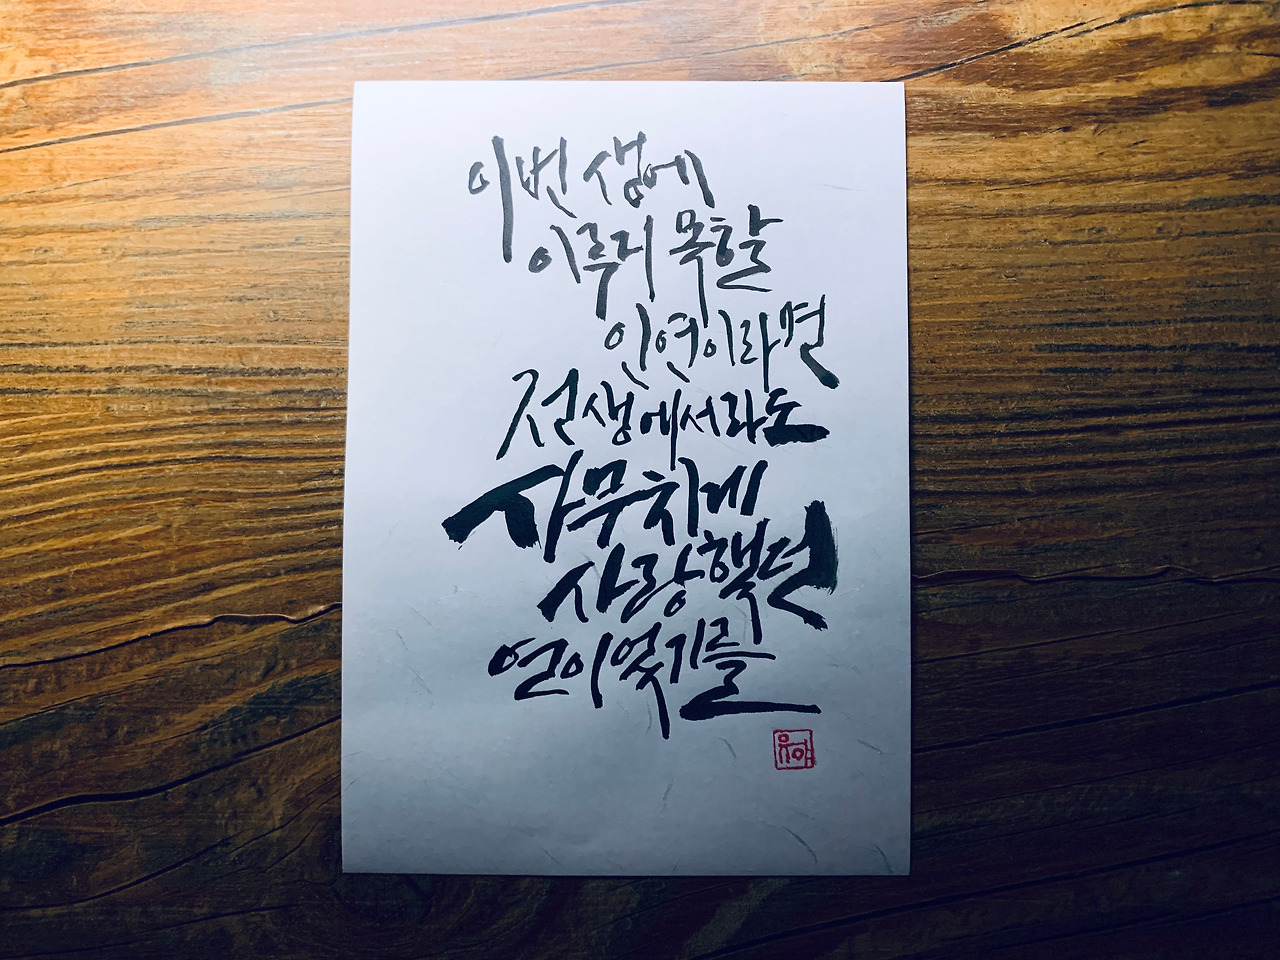 이번 생에
이루지 못할
인연이라면
전생에서라도
사무치게
사랑했던
연이었기를
유야